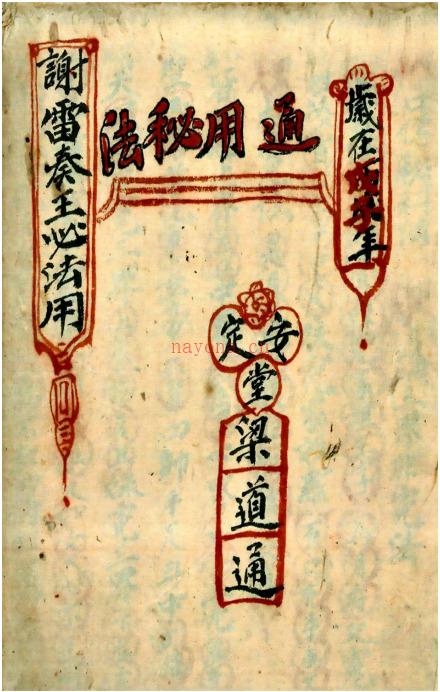 歲在戊年
通用秘法
安定
堂
梁
道
通
謝雷奏王必法用